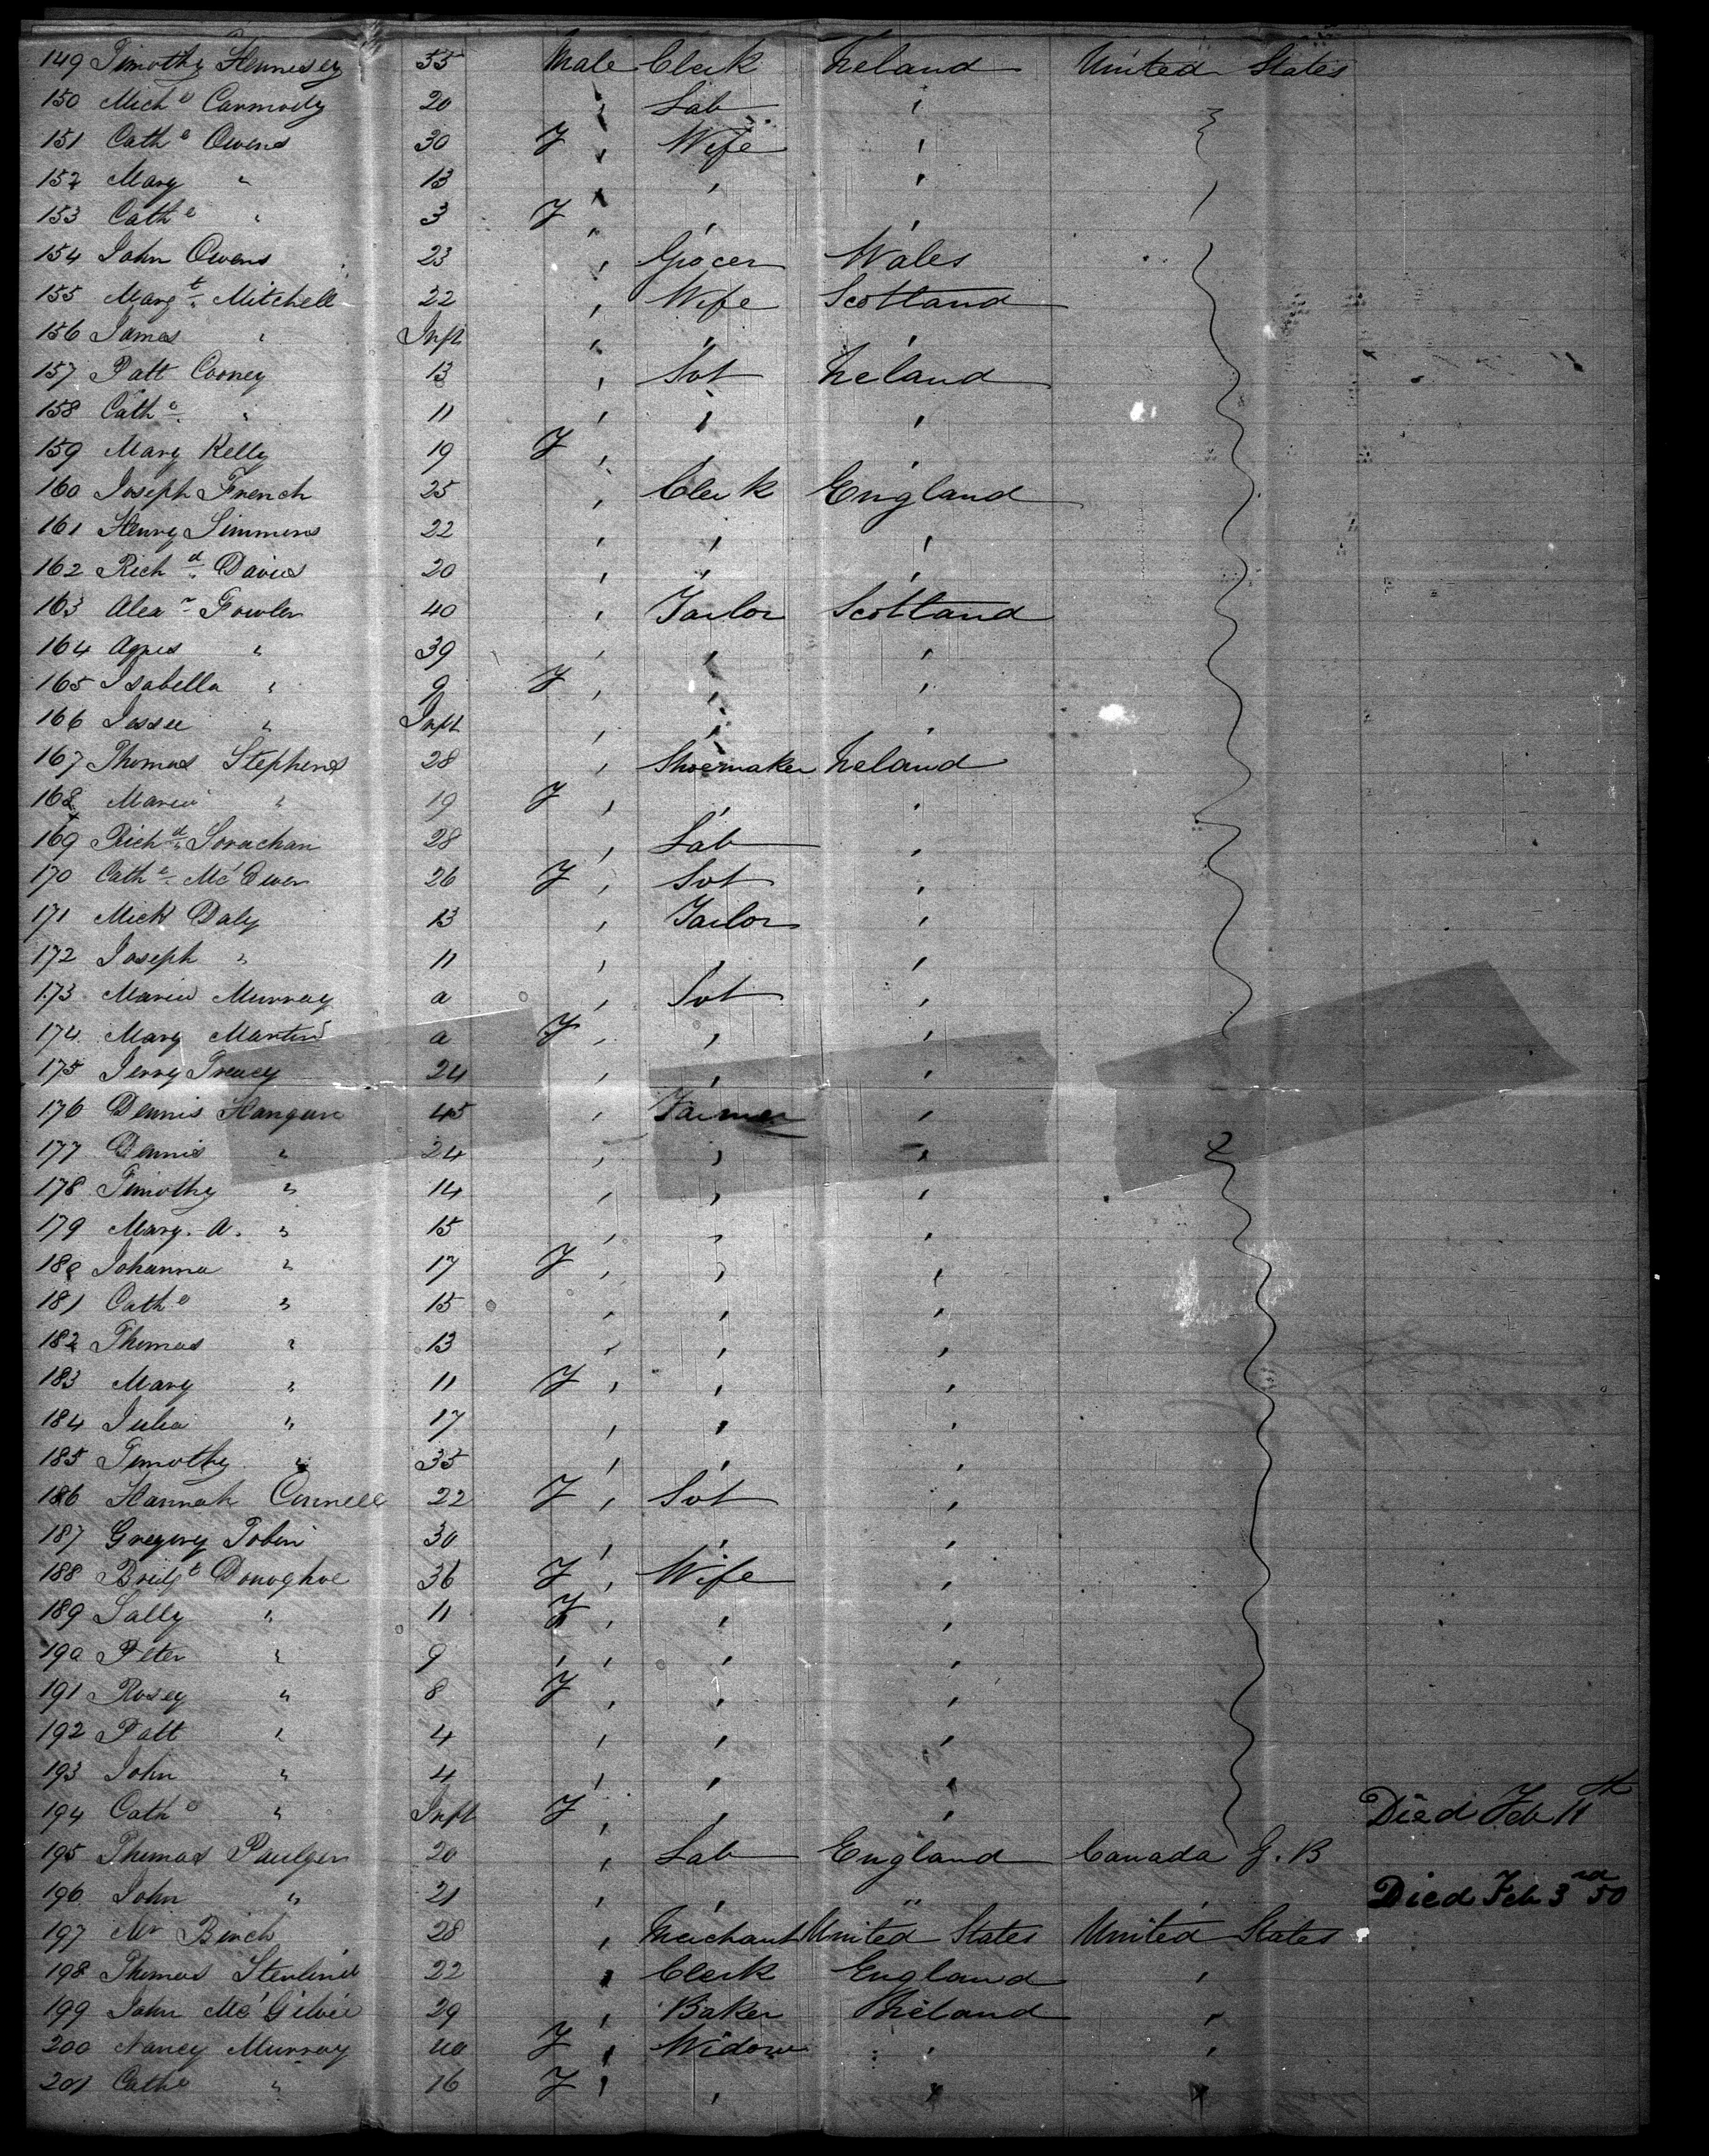 149 Timothy Hennesey 35 Male Clerk Ireland United States
150 Mich l Carmody 20 , Lab ,
151 Cath e Owens 30 F , Wife ,
152 Mary " 13 , , ,
153 Cath e " 3 F , , ,
154 John Owens 23 , Grocer Wales
155 Marg t Mitchell 22 , Wife Scotland
156 James " Inft , , ,
157 Patt Cooney 13 , Svt Ireland
158 Cath e " 11 , , ,
159 Mary Kelly 19 F , , ,
160 Joseph French 25 , Clerk England
161 Henry Simmons 22 , , ,
162 Rich d Davies 20 , , ,
163 Alex r Fowler 40 , Tailor Scotland
164 Agnes " 39 , , ,
165 Isabella " 9 F , , ,
166 Jessee " Inft , , ,
167 Thomas Stephens 28 , Shoemaker Ireland
168 Maria " 19 F , , ,
169 Rich d 28 , Lab ,
170 Cath e McOwen 26 F , Svt ,
171 Mick Daly 13 , Tailor ,
172 Joseph " 11 , , ,
173 Maria Murray a , Svt ,
174 Mary Martin a F , , ,
175 Jerry Treacy 24 , , ,
176 Dennis 45 , Farmer ,
177 Dennis " 24 , , ,
178 Timothy " 14 , , ,
179 Mary. A. " 15 , , ,
180 Johanna " 17 F , , ,
181 Cath e " 15 , , ,
182 Thomas " 13 , , ,
183 Mary " 11 F , , ,
184 Julia " 17 , , ,
185 Timothy " 35 , , ,
186 Hannah Connell 22 F , Svt ,
187 Gregory Tobin 30 , , ,
188 Bridg t Donoghoe 36 F , Wife ,
189 Sally " 11 F , , ,
190 Peter " 9 , , , ,
191 Rosey " 8 F , , ,
192 Patt " 4 , , ,
193 John " 4 , , ,
194 Cath e " Inft F , , , Died Feb 11th
195 Thomas Paulger 20 , Lab England Canada G. B
196 John " 21 , , " , Died Feb 3rd 50
197 Mr Birch 28 , Merchant United States United States
198 Thomas 22 , Clerk England ,
199 John McGilvie 29 , Baker Ireland ,
200 Nancy Murray 40 F , Widow , ,
201 Cath e " 16 F , , , ,